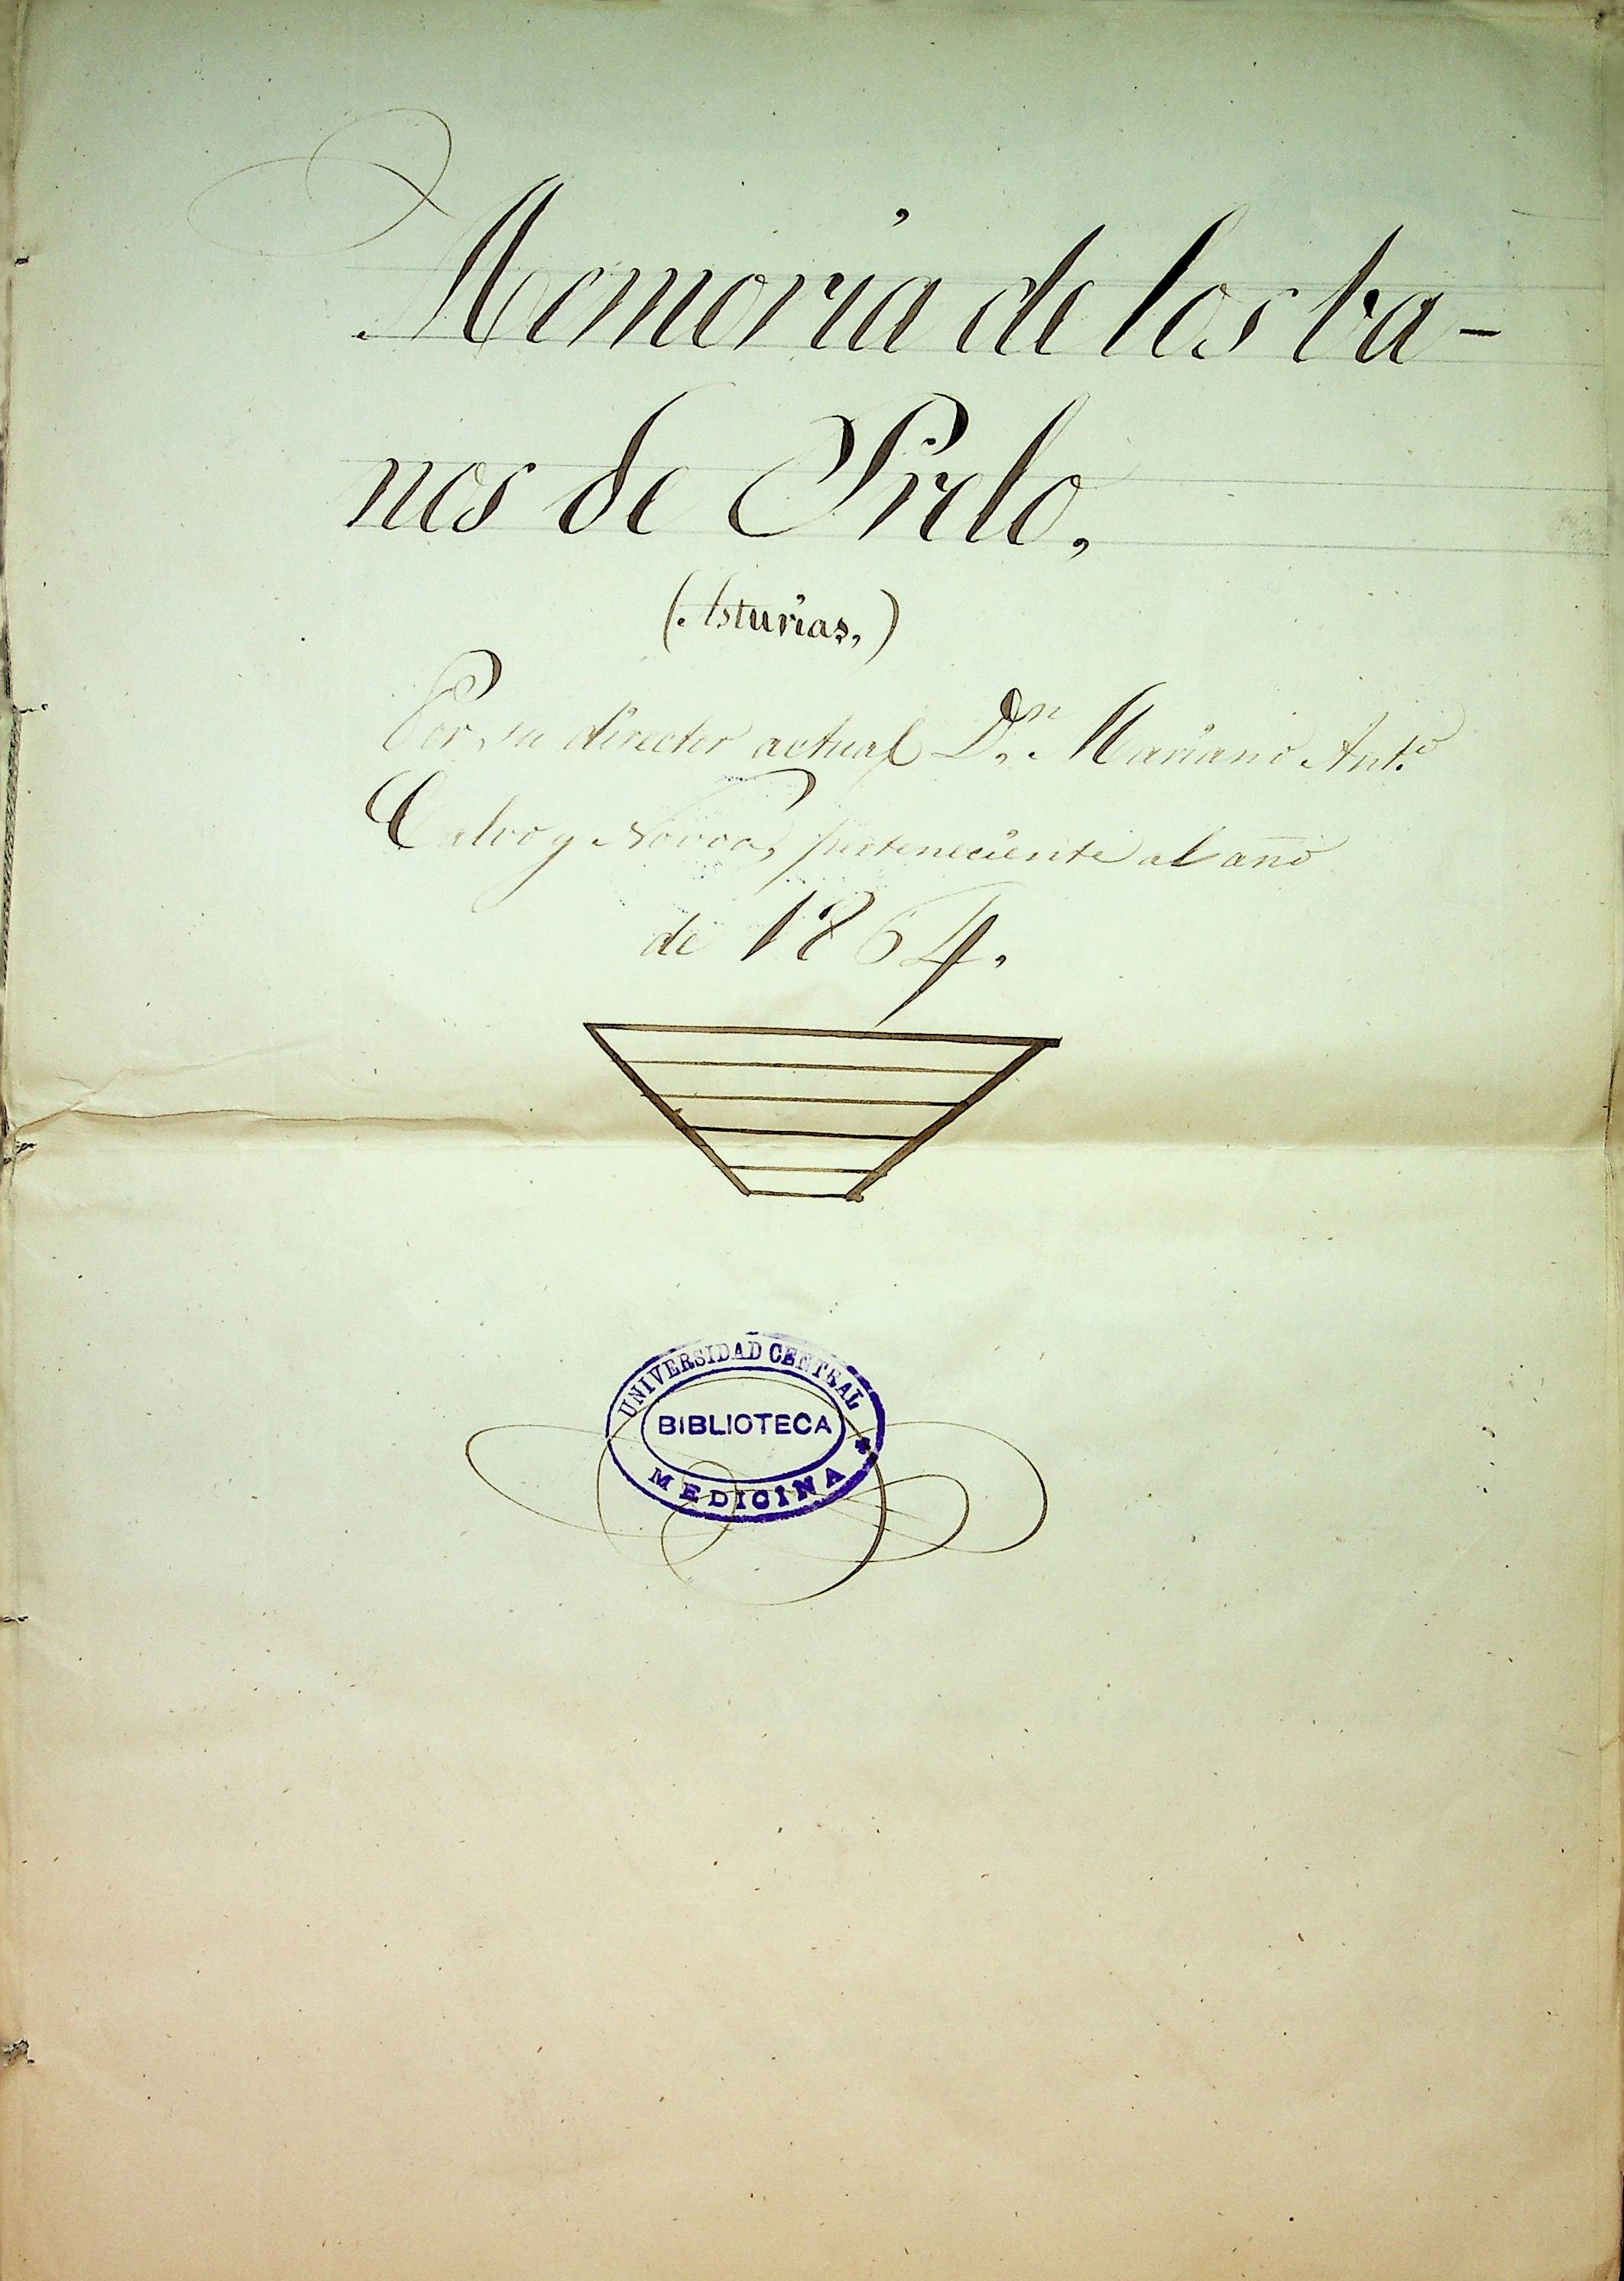 Memoria de los ba-
nos de Prelo.
(Asturias.)
Por su director actual Dn. Mariano Anto.
Calvo y Novoa, perteneciente al año
de 1864.
UNIVERSIDAD CENTRAL
BIBLIOTECA
MEDICINA